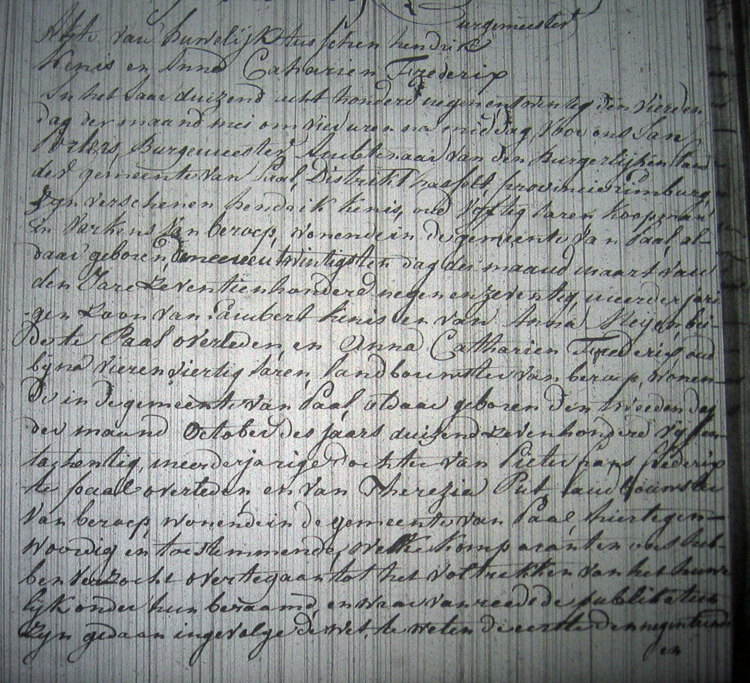 Burgemeester
Akte van huwelijk tusschen hendrik
Kenis en Anna Catharien Frederix
In het Jaar duizend acht honderd negenentwintig den vierden
dag der maand mei om vier uren na middag, voor ons Jan
Burgemeester Ambtenaar van den Burgerlijken stand
der gemeente van Paal, District hasselt, provincie Limburg,
Zijn verschenen hendrik Kenis, oud vyftig Jaren Koopman
in Varkens van beroep, wonende in de gemeente van Paal, al-
daar geboren den eenentwintigsten dag der maand maart van
den Jare zeventienhonderd negenenzeventig, meerderjari
-gen zoon van Lambert Kenis en van Anna bei-
de te Paal overleden, en Anna Catharien Frederix oud
byna vierenviertig Jaren, landbouwster van beroep, wonen-
de in de gemeente van Paal aldaar geboren den tweeden dag
der maand October des jaars duizend zevenhonderd vyfen-
tachentig, meerderjarige dochter van Pieter frederix
te paal overleden en van Therezia Put landbouwster
van beroep, wonende in de gemeente van Paal, hier tegen-
woordig en toestemmende, welke komparanten ons heb-
ben verzocht overtegaan tot het voltrekken van het huwe-
lijk onder hun beraamd, en waar van reeds de publikatien
zyn gedaan ingevolge de wet, te weten de eerste den negentienden
en